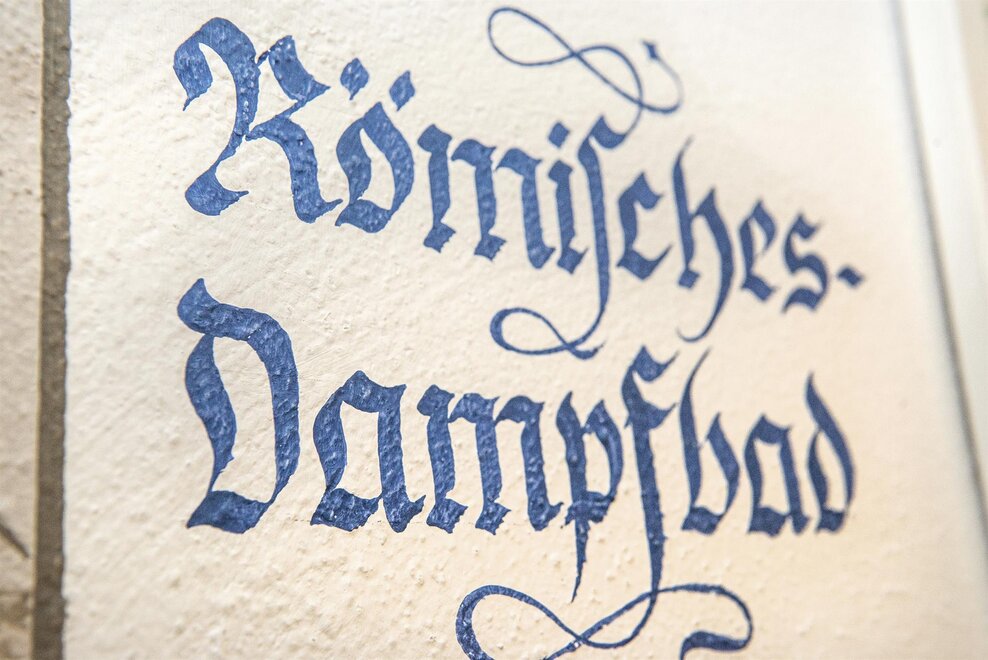 Römiſches.
Dampfbad